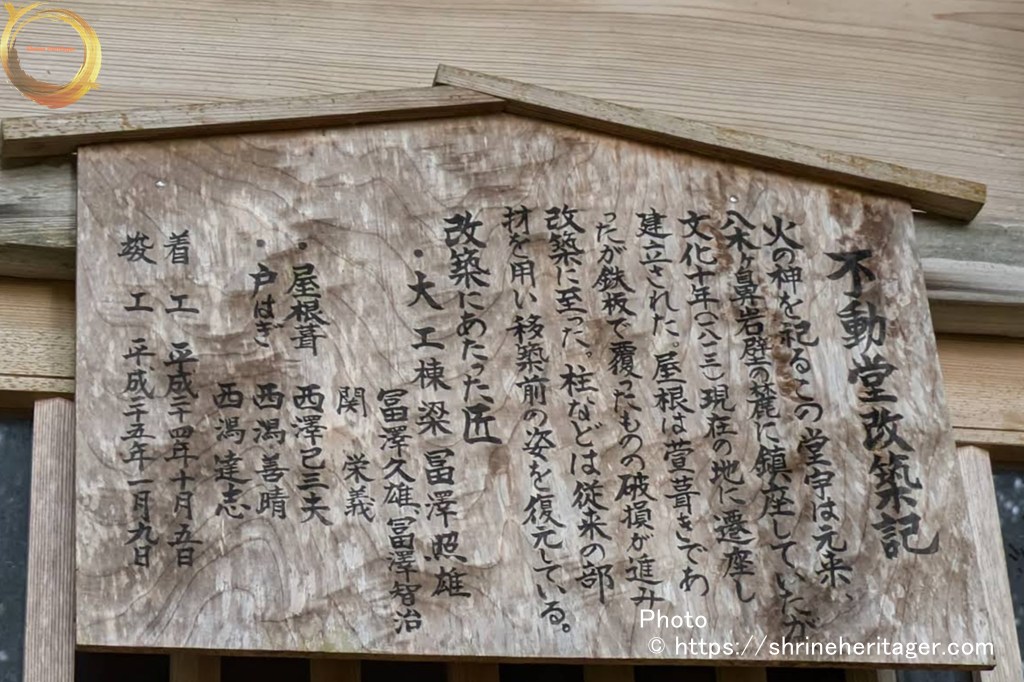 不動堂改築記
火の神を祀るこの堂宇は元来、
八木ヶ鼻岩壁の麓に鎮座していたが
文化十年(一八一三)現在の地に遷座し
建立された。屋根は萱葺きであ
ったが鉄板で覆ったものの破損が進み
改築に至った。柱などは従来の部
材を用い移築前の姿を復元している。
改築にあたった匠
・大工棟梁 冨澤照雄
冨澤久雄、冨澤智治
関 栄義
・屋根葺 西澤己三夫
・戸はぎ 西潟善晴
西潟達志
着工 平成二十四年十月五日
竣工 平成二十五年一月九日
Photo
© https://shrineheritager.com